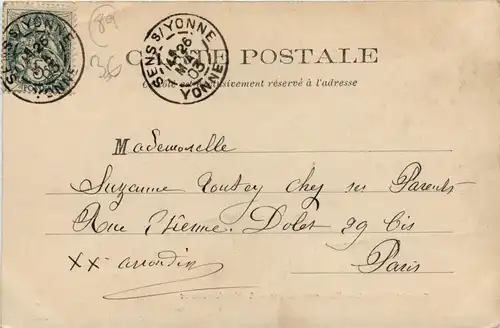 89
36
SENS S/YONNE
26
MAI
03
YONNE
CARTE POSTALE
Ce côté est exclusivement réservé à l'adresse
Mademoiselle
Suzanne chez ses Parents
Rue Etienne Dolet 29 bis
XXe arrondis
Paris